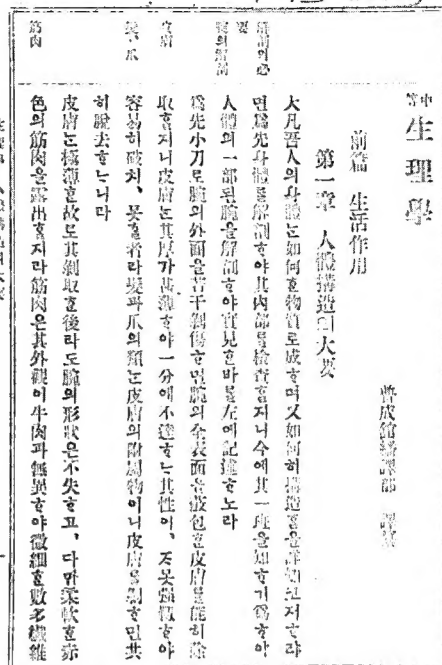 中等 生理學
普成館繙譯部 譯纂
前篇 生活作用
第一章 人體搆造의大要
大凡吾人의身體는如何ᄒᆞᆫ物質로成ᄒᆞ며又如何히搆造ᄒᆞᆷ을詳知코저ᄒᆞ랴
면爲先身體를解剖ᄒᆞ야其內部를檢査ᄒᆞᆯ지니今에其一班을知ᄒᆞ기爲ᄒᆞ야
人體의一部된腕을解剖ᄒᆞ야實見ᄒᆞᆫ바를左에記述ᄒᆞ노라
爲先小刀로腕의外面을若干剝傷ᄒᆞ면腕의全表面을被包ᄒᆞᆫ皮膚를能히除
取ᄒᆞᆯ지니皮膚는其厚가甚薄ᄒᆞ야一分에不達ᄒᆞ는其性이、甚못强靱ᄒᆞ야
容易히破치、못ᄒᆞᆯ者라髮과爪의類는皮膚의附屬物이니皮膚를剝ᄒᆞ면共
히脫去ᄒᆞᄂᆞ니라
皮膚는極薄ᄒᆞᆫ故로其剝取ᄒᆞᆫ後라도腕의形狀은不失ᄒᆞ고、다만柔軟ᄒᆞᆫ赤
色의筋肉을露出ᄒᆞᆯ지라筋肉은其外觀이牛肉과無異ᄒᆞ야微細ᄒᆞᆫ數多纖維
解剖의必要
腕의解剖
皮膚
髮、爪
筋肉